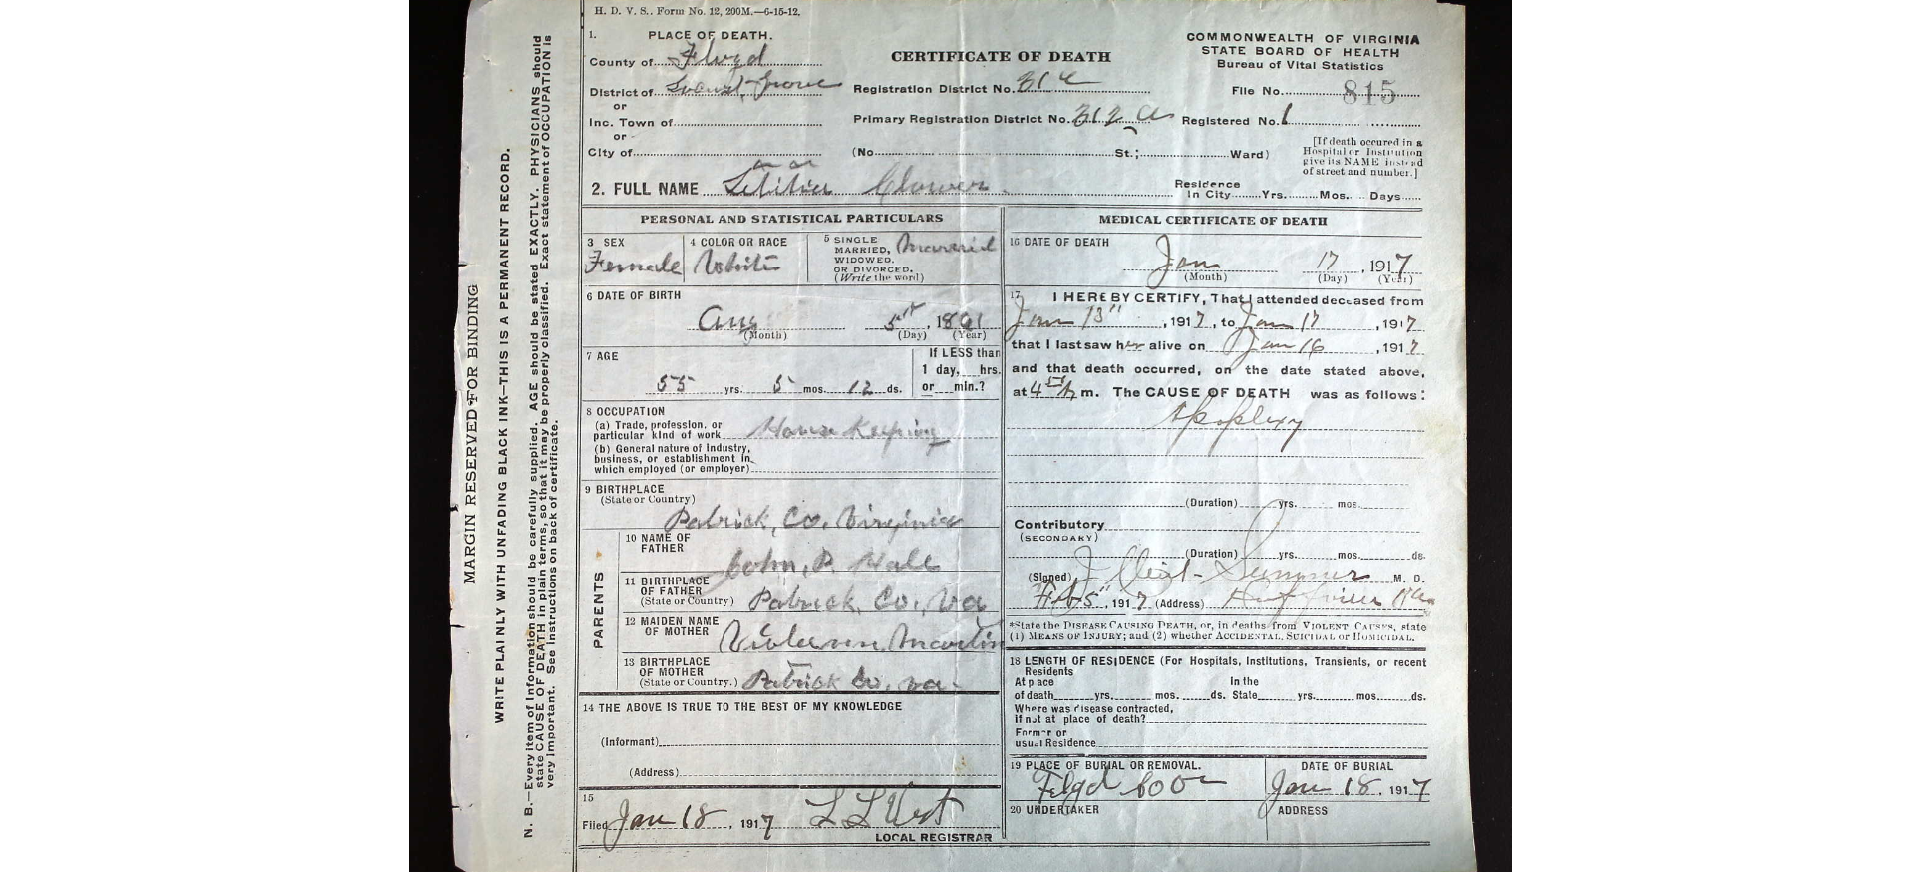 H. D. V. S.. Form No. 12, 200M.—6-15-12.
1. PLACE OF DEATH.
County of Floyd
District of Locust Grove
or
Inc. Town of
or
City of
CERTIFICATE OF DEATH
Registration District No. 31
Primary Registration District No. 312 a
(No. St.; Ward)
COMMONWEALTH OF VIRGINIA
STATE BOARD OF HEALTH
Bureau of Vital Statistics
File No. 815
Registered No. 1
[If death occured in a
Hospital or Institution
give its NAME instead
of street and number.]
2. FULL NAME Letitia Clower
Residence
In City Yrs. Mos. Days
PERSONAL AND STATISTICAL PARTICULARS
3 SEX
Female
4 COLOR OR RACE
White
5 SINGLE
MARRIED,
WIDOWED,
OR DIVORCED.
(Write the word)
Married
6 DATE OF BIRTH
Aug 5th, 1861
(Month) (Day) (Year)
7 AGE
55 yrs. 5 mos. 12 ds.
If LESS than
1 day, hrs.
or min.?
8 OCCUPATION
(a) Trade, profession, or
particular kind of work House Keeping
(b) General nature of Industry,
business, or establishment in
which employed (or employer)
9 BIRTHPLACE
(State or Country)
Patrick, Co. Virginia
PARENTS
10 NAME OF
FATHER
John, P. Hall
11 BIRTHPLACE
OF FATHER
(State or Country)
Patrick, Co., Va
12 MAIDEN NAME
OF MOTHER
Martin
13 BIRTHPLACE
OF MOTHER
(State or Country.)
Patrick Co, va.
14 THE ABOVE IS TRUE TO THE BEST OF MY KNOWLEDGE
(Informant)
(Address)
15
Filed Jan 18, 1917 L L
LOCAL REGISTRAR
MEDICAL CERTIFICATE OF DEATH
16 DATE OF DEATH
Jan 17, 1917
(Month) (Day) (Year)
17 I HEREBY CERTIFY, That I attended deceased from
Jan 13", 1917, to Jan 17, 1917
that I last saw her alive on Jan 16, 1917
and that death occurred, on the date stated above,
at 4 m. The CAUSE OF DEATH was as follows:
Apoplexy
(Duration) yrs. mos.
Contributory
(SECONDARY)
(Duration) yrs. mos. ds.
(Signed) M. D.
Feb 5", 1917 (Address)
*State the DISEASE CAUSING DEATH, or, in deaths from VIOLENT CAUSES, state
(1) MEANS OF INJURY; and (2) whether ACCIDENTAL, SUICIDAL or HOMICIDAL.
18 LENGTH OF RESIDENCE (For Hospitals, Institutions, Transients, or recent
Residents
At place In the
of death yrs. mos. ds. State yrs. mos. ds.
Where was disease contracted,
If not at place of death?
Former or
usual Residence
19 PLACE OF BURIAL OR REMOVAL.
DATE OF BURIAL
Jan 18, 1917
20 UNDERTAKER
ADDRESS
MARGIN RESERVED FOR BINDING
WRITE PLAINLY WITH UNFADING BLACK INK—THIS IS A PERMANENT RECORD.
N. B.—Every item of Information should be carefully supplied. AGE should be stated EXACTLY. PHYSICIANS should
state CAUSE OF DEATH in plain terms, so that it may be properly classified. Exact statement of OCCUPATION is
very important. See Instructions on back of certificate.